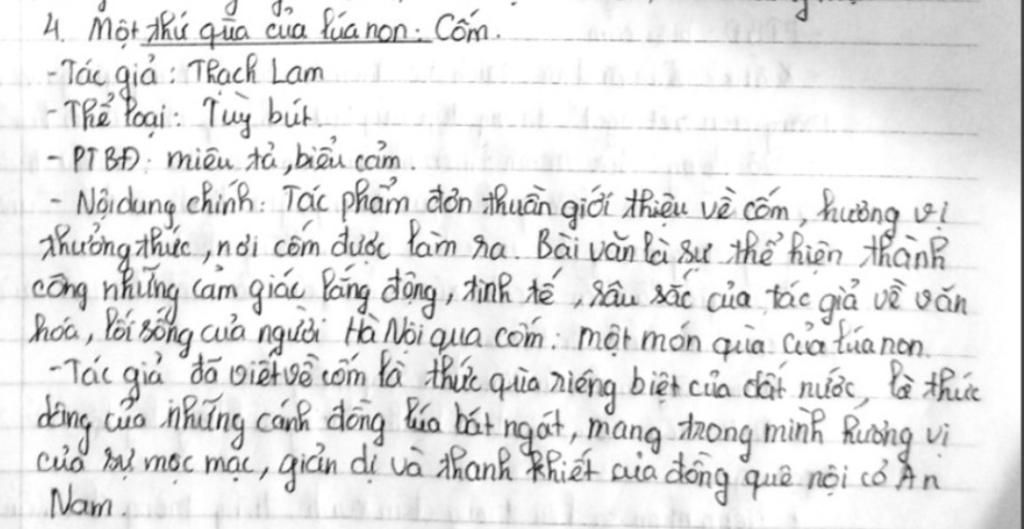 4. Một thứ quà của lúa non: Cốm.
- Tác giả: Thạch Lam
- Thể loại: Tuỳ bút.
- PTBĐ: miêu tả, biểu cảm.
- Nội dung chính: Tác phẩm đơn thuần giới thiệu về cốm, hương vị
thưởng thức, nơi cốm được làm ra. Bài văn là sự thể hiện thành
công những cảm giác lắng động, tinh tế, sâu sắc của tác giả về văn
hóa, lối sống của người Hà Nội qua cốm: một món quà của lúa non.
- Tác giả đã viết về cốm là thức quà riêng biệt của đất nước, là thức
dâng của những cánh đồng lúa bát ngát, mang trong mình hương vị
của sự mộc mạc, giản dị và thanh khiết của đồng quê nội cỏ An
Nam.